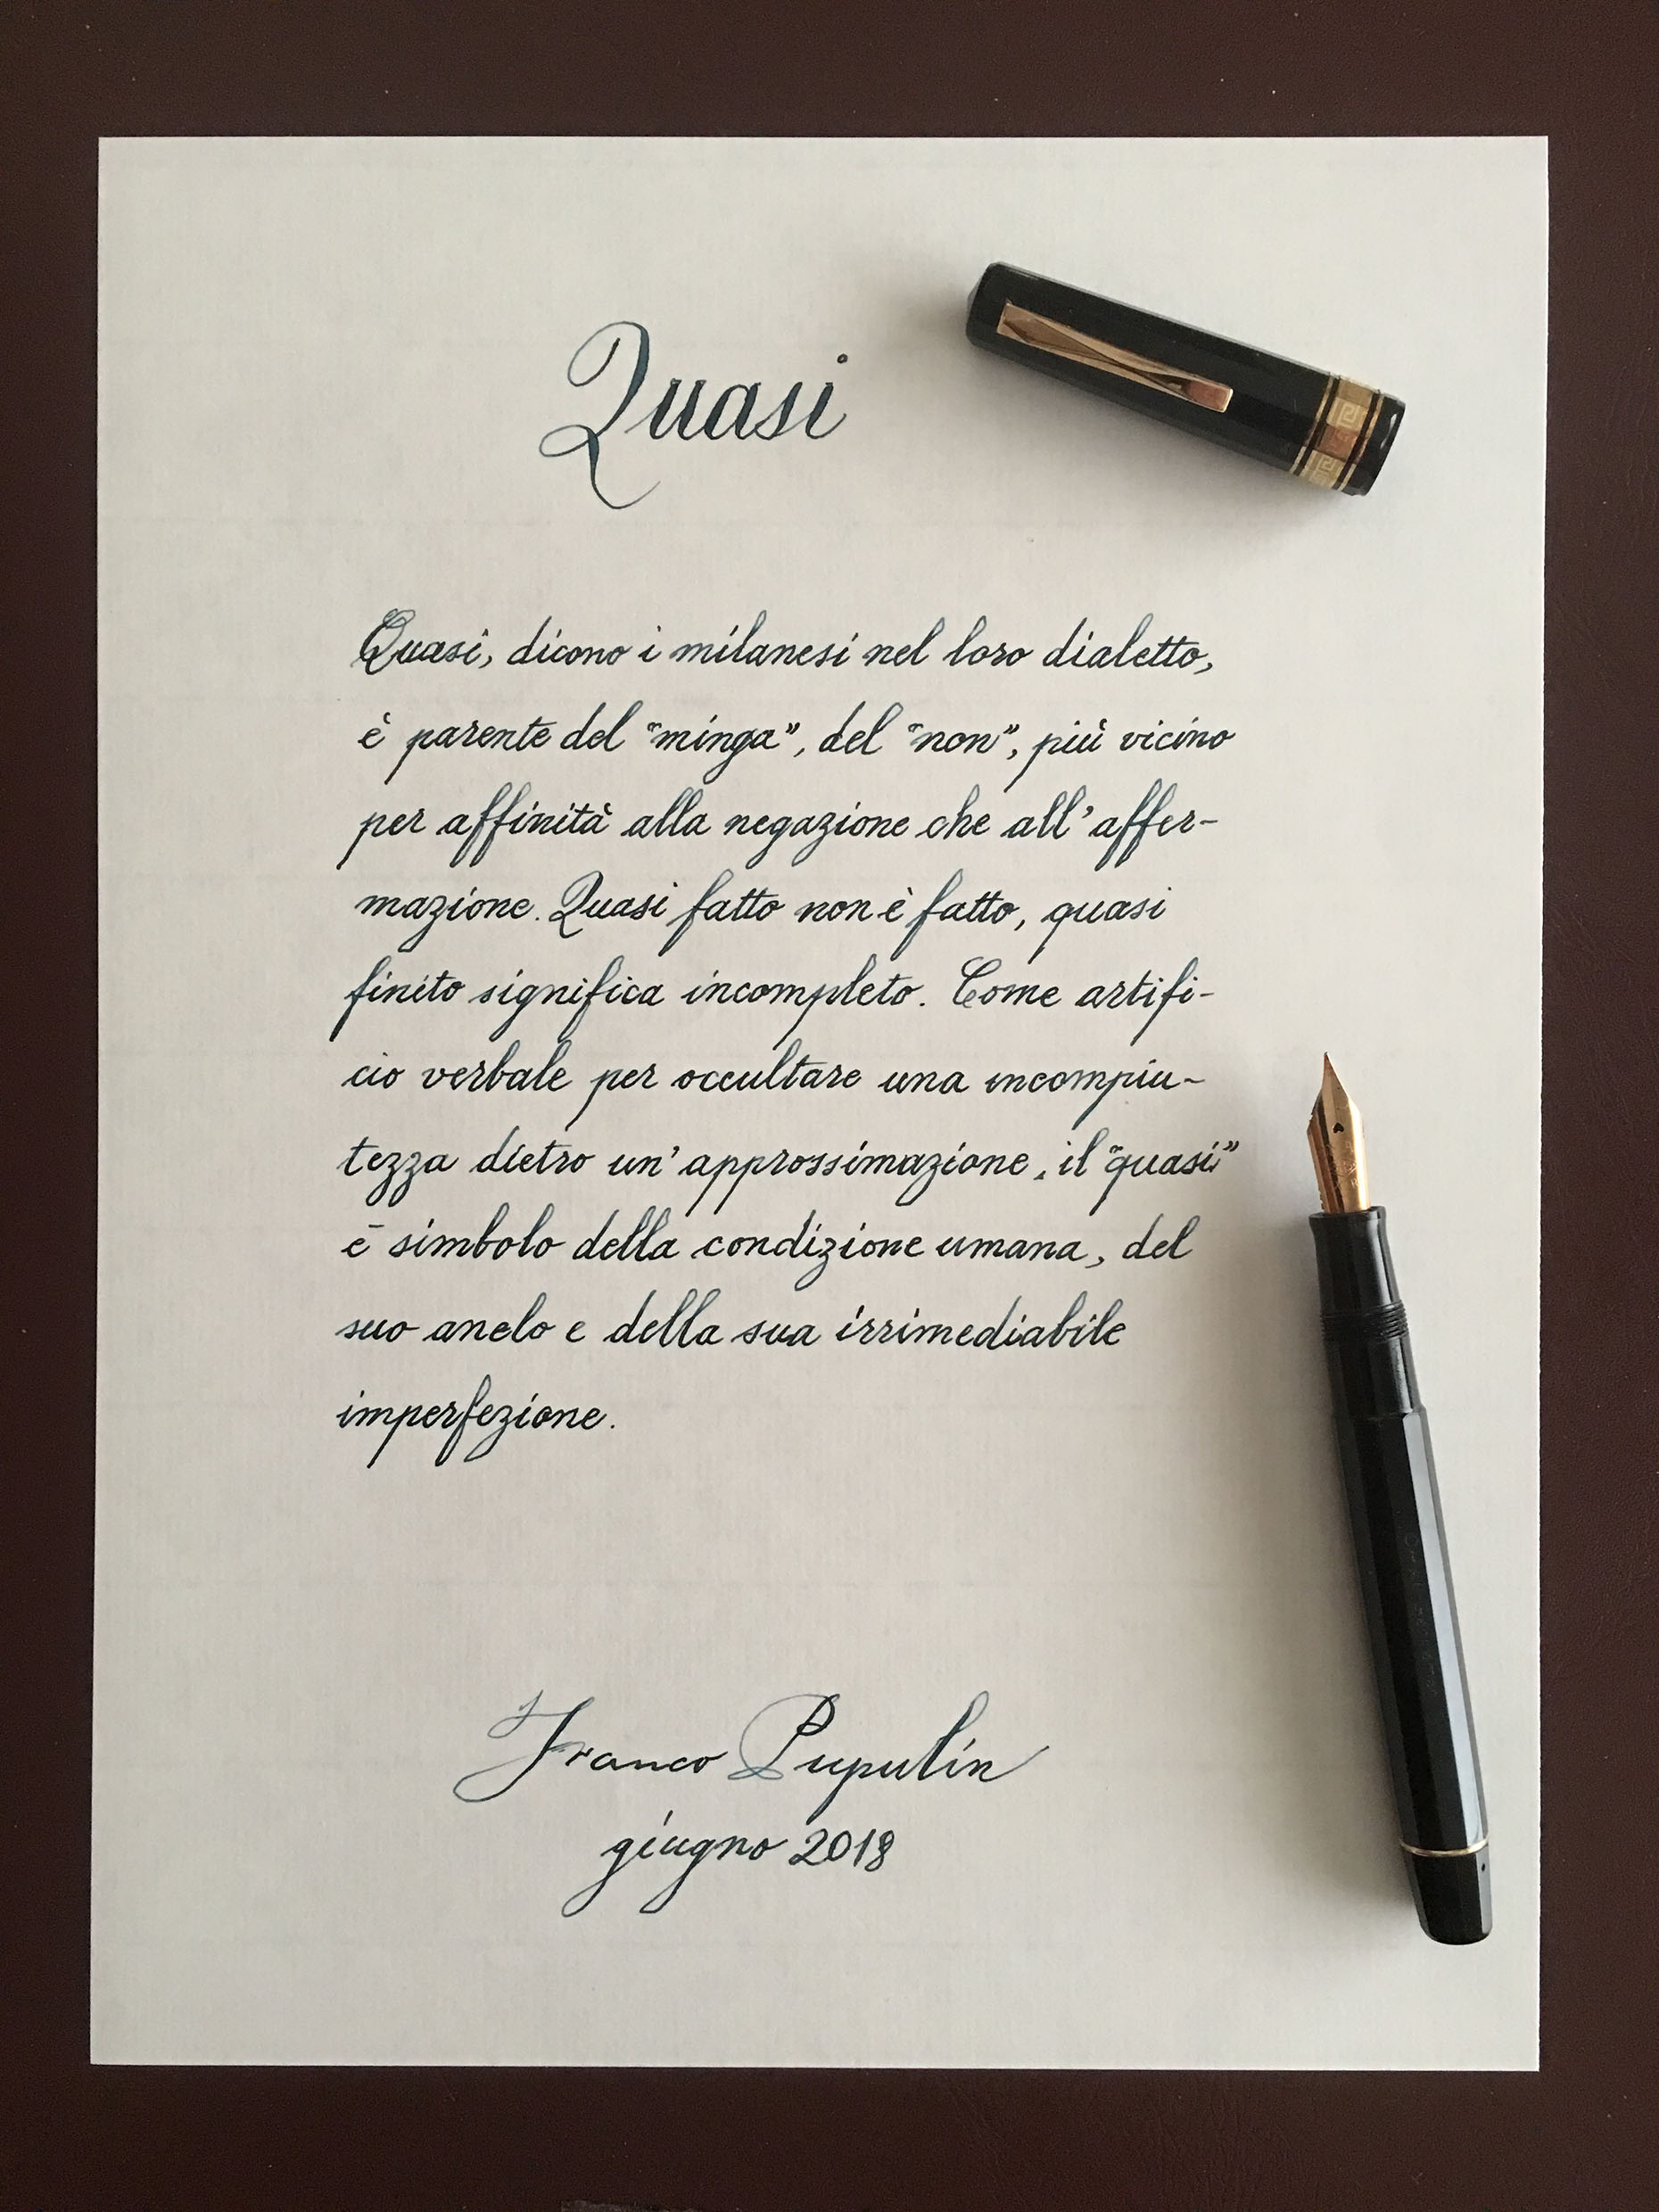 Quasi
Quasi, dicono i milanesi nel loro dialetto,
è parente del "minga", del "non", più vicino
per affinità alla negazione che all'affer-
mazione. Quasi fatto non è fatto, quasi
finito significa incompleto. Come artifi-
cio verbale per occultare una incompiu-
tezza dietro un'approssimazione, il "quasi"
è simbolo della condizione umana, del
suo anelo e della sua irrimediabile
imperfezione.
Franco Pupulin
giugno 2018